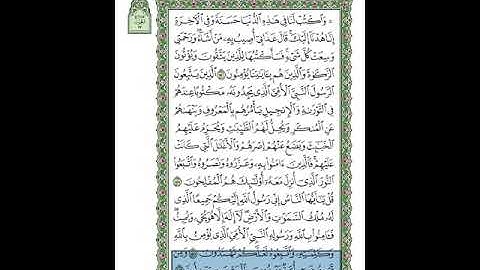 ۞ وَٱكْتُبْ لَنَا فِى هَٰذِهِ ٱلدُّنْيَا حَسَنَةً وَفِى ٱلْءَاخِرَةِ
إِنَّا هُدْنَآ إِلَيْكَ قَالَ عَذَابِىٓ أُصِيبُ بِهِۦ مَنْ أَشَآءُ وَرَحْمَتِى
وَسِعَتْ كُلَّ شَىْءٍ فَسَأَكْتُبُهَا لِلَّذِينَ يَتَّقُونَ وَيُؤْتُونَ
ٱلزَّكَوٰةَ وَٱلَّذِينَ هُم بِـَٔايَٰتِنَا يُؤْمِنُونَ ۝ ٱلَّذِينَ يَتَّبِعُونَ
ٱلرَّسُولَ ٱلنَّبِىَّ ٱلْأُمِّىَّ ٱلَّذِى يَجِدُونَهُۥ مَكْتُوبًا عِندَهُمْ
فِى ٱلتَّوْرَىٰةِ وَٱلْإِنجِيلِ يَأْمُرُهُم بِٱلْمَعْرُوفِ وَيَنْهَىٰهُمْ
عَنِ ٱلْمُنكَرِ وَيُحِلُّ لَهُمُ ٱلطَّيِّبَٰتِ وَيُحَرِّمُ عَلَيْهِمُ
ٱلْخَبَٰٓئِثَ وَيَضَعُ عَنْهُمْ إِصْرَهُمْ وَٱلْأَغْلَٰلَ ٱلَّتِى كَانَتْ
عَلَيْهِمْ فَٱلَّذِينَ ءَامَنُوا۟ بِهِۦ وَعَزَّرُوهُ وَنَصَرُوهُ وَٱتَّبَعُوا۟
ٱلنُّورَ ٱلَّذِىٓ أُنزِلَ مَعَهُۥٓ أُو۟لَٰٓئِكَ هُمُ ٱلْمُفْلِحُونَ ۝
قُلْ يَٰٓأَيُّهَا ٱلنَّاسُ إِنِّى رَسُولُ ٱللَّهِ إِلَيْكُمْ جَمِيعًا ٱلَّذِى
لَهُۥ مُلْكُ ٱلسَّمَٰوَٰتِ وَٱلْأَرْضِ لَآ إِلَٰهَ إِلَّا هُوَ يُحْىِۦ وَيُمِيتُ
فَـَٔامِنُوا۟ بِٱللَّهِ وَرَسُولِهِ ٱلنَّبِىِّ ٱلْأُمِّىِّ ٱلَّذِى يُؤْمِنُ بِٱللَّهِ
وَكَلِمَٰتِهِۦ وَٱتَّبِعُوهُ لَعَلَّكُمْ تَهْتَدُونَ ۝ وَمِن